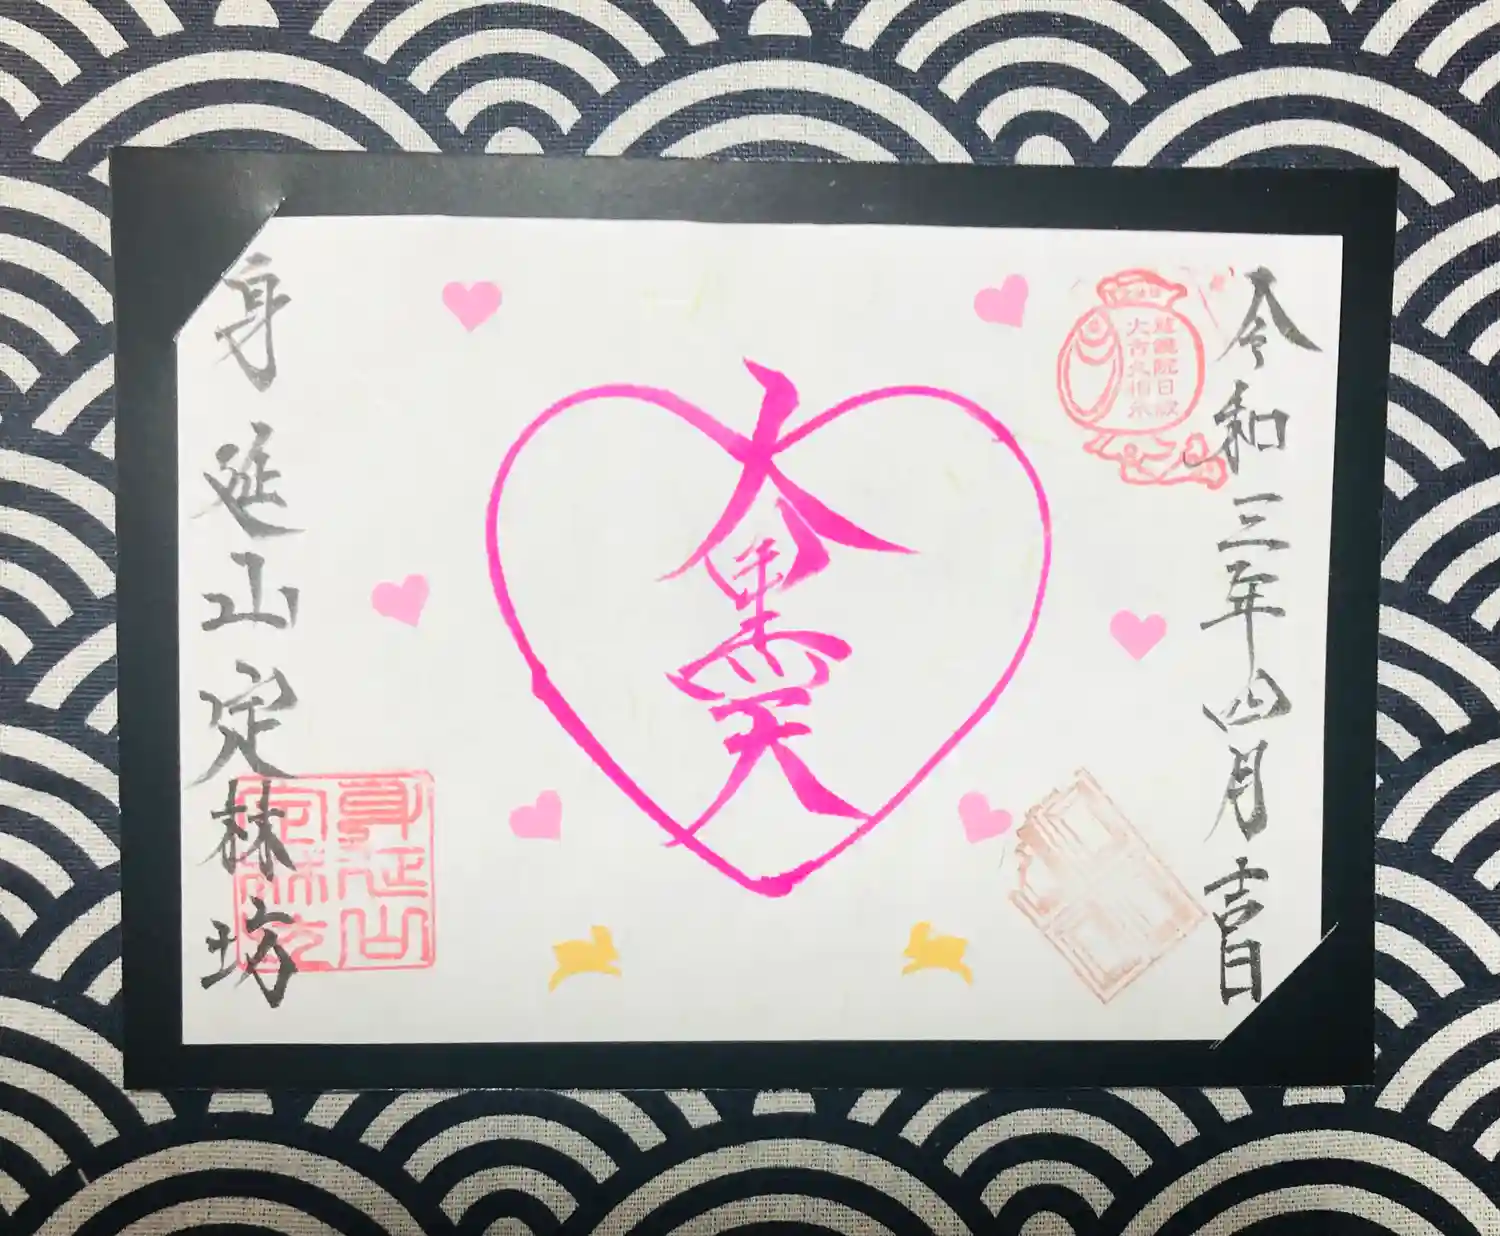 令和三年四月吉日
大黒天
身延山定林坊
身延山
定林坊